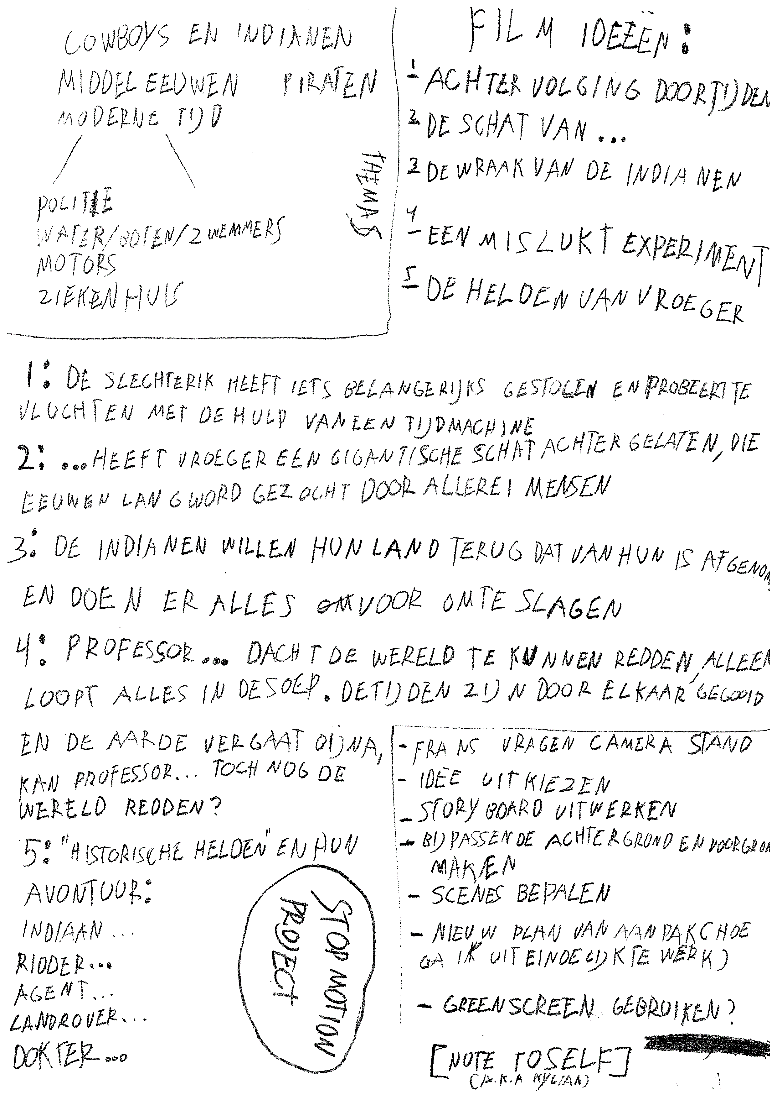 COWBOYS EN INDIANEN
MIDDELEEUWEN PIRATEN
MODERNE TIJD
POLITIE
WATER/BOTEN/ZWEMMERS
MOTORS
ZIEKENHUIS
THEMAS
FILM IDEEËN:
1 ACHTERVOLGING DOOR TIJDEN
2 DE SCHAT VAN ...
3 DE WRAAK VAN DE INDIANEN
4 EEN MISLUKT EXPERIMENT
5 DE HELDEN VAN VROEGER
1: DE SLECHTERIK HEEFT IETS BELANGERIJKS GESTOLEN EN PROBEERT TE
VLUCHTEN MET DE HULP VAN EEN TIJDMACHINE
2: ...HEEFT VROEGER EEN GIGANTISCHE SCHAT ACHTER GELATEN, DIE
EEUWEN LANG WORD GEZOCHT DOOR ALLEREI MENSEN
3: DE INDIANEN WILLEN HUN LAND TERUG DAT VAN HUN IS AFGENOM
EN DOEN ER ALLES VOOR OM TE SLAGEN
4: PROFESSOR... DACHT DE WERELD TE KUNNEN REDDEN, ALLEEN
LOOPT ALLES IN DE SOEP. DE TIJDEN ZIJN DOOR ELKAAR GEGOOID
EN DE AARDE VERGAAT BIJNA,
KAN PROFESSOR... TOCH NOG DE
WERELD REDDEN?
5: "HISTORISCHE HELDEN" EN HUN
AVONTUUR:
INDIAAN...
RIDDER...
AGENT...
LANDROVER...
DOKTER...
STOP MOTION
PROJECT
- FRANS VRAGEN CAMERA STAND
- IDEE UITKIEZEN
- STORYBOARD UITWERKEN
- BIJPASSENDE ACHTERGROND EN VOORGRON
MAKEN
- SCENES BEPALEN
- NIEUW PLAN VAN AANPAK (HOE
GA IK UITEINDELIJK TE WERK)
- GREENSCREEN GEBRUIKEN?
[NOTE TO SELF]
(A.K.A KYLIAN)